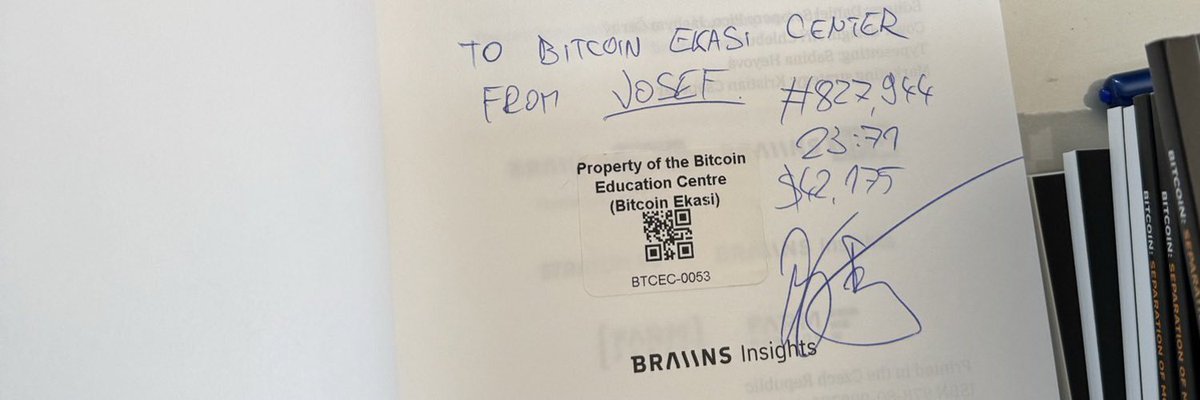 TO BITCOIN EKASI CENTER
FROM JOSEF.
#827,944
23:11
$42,175
Property of the Bitcoin
Education Centre
(Bitcoin Ekasi)
BTCEC-0053
BRAIINS Insights
BITCOIN: SEPARATION OF M
BITCOIN: SEPARATION OF M
BITCOIN: SEPARA